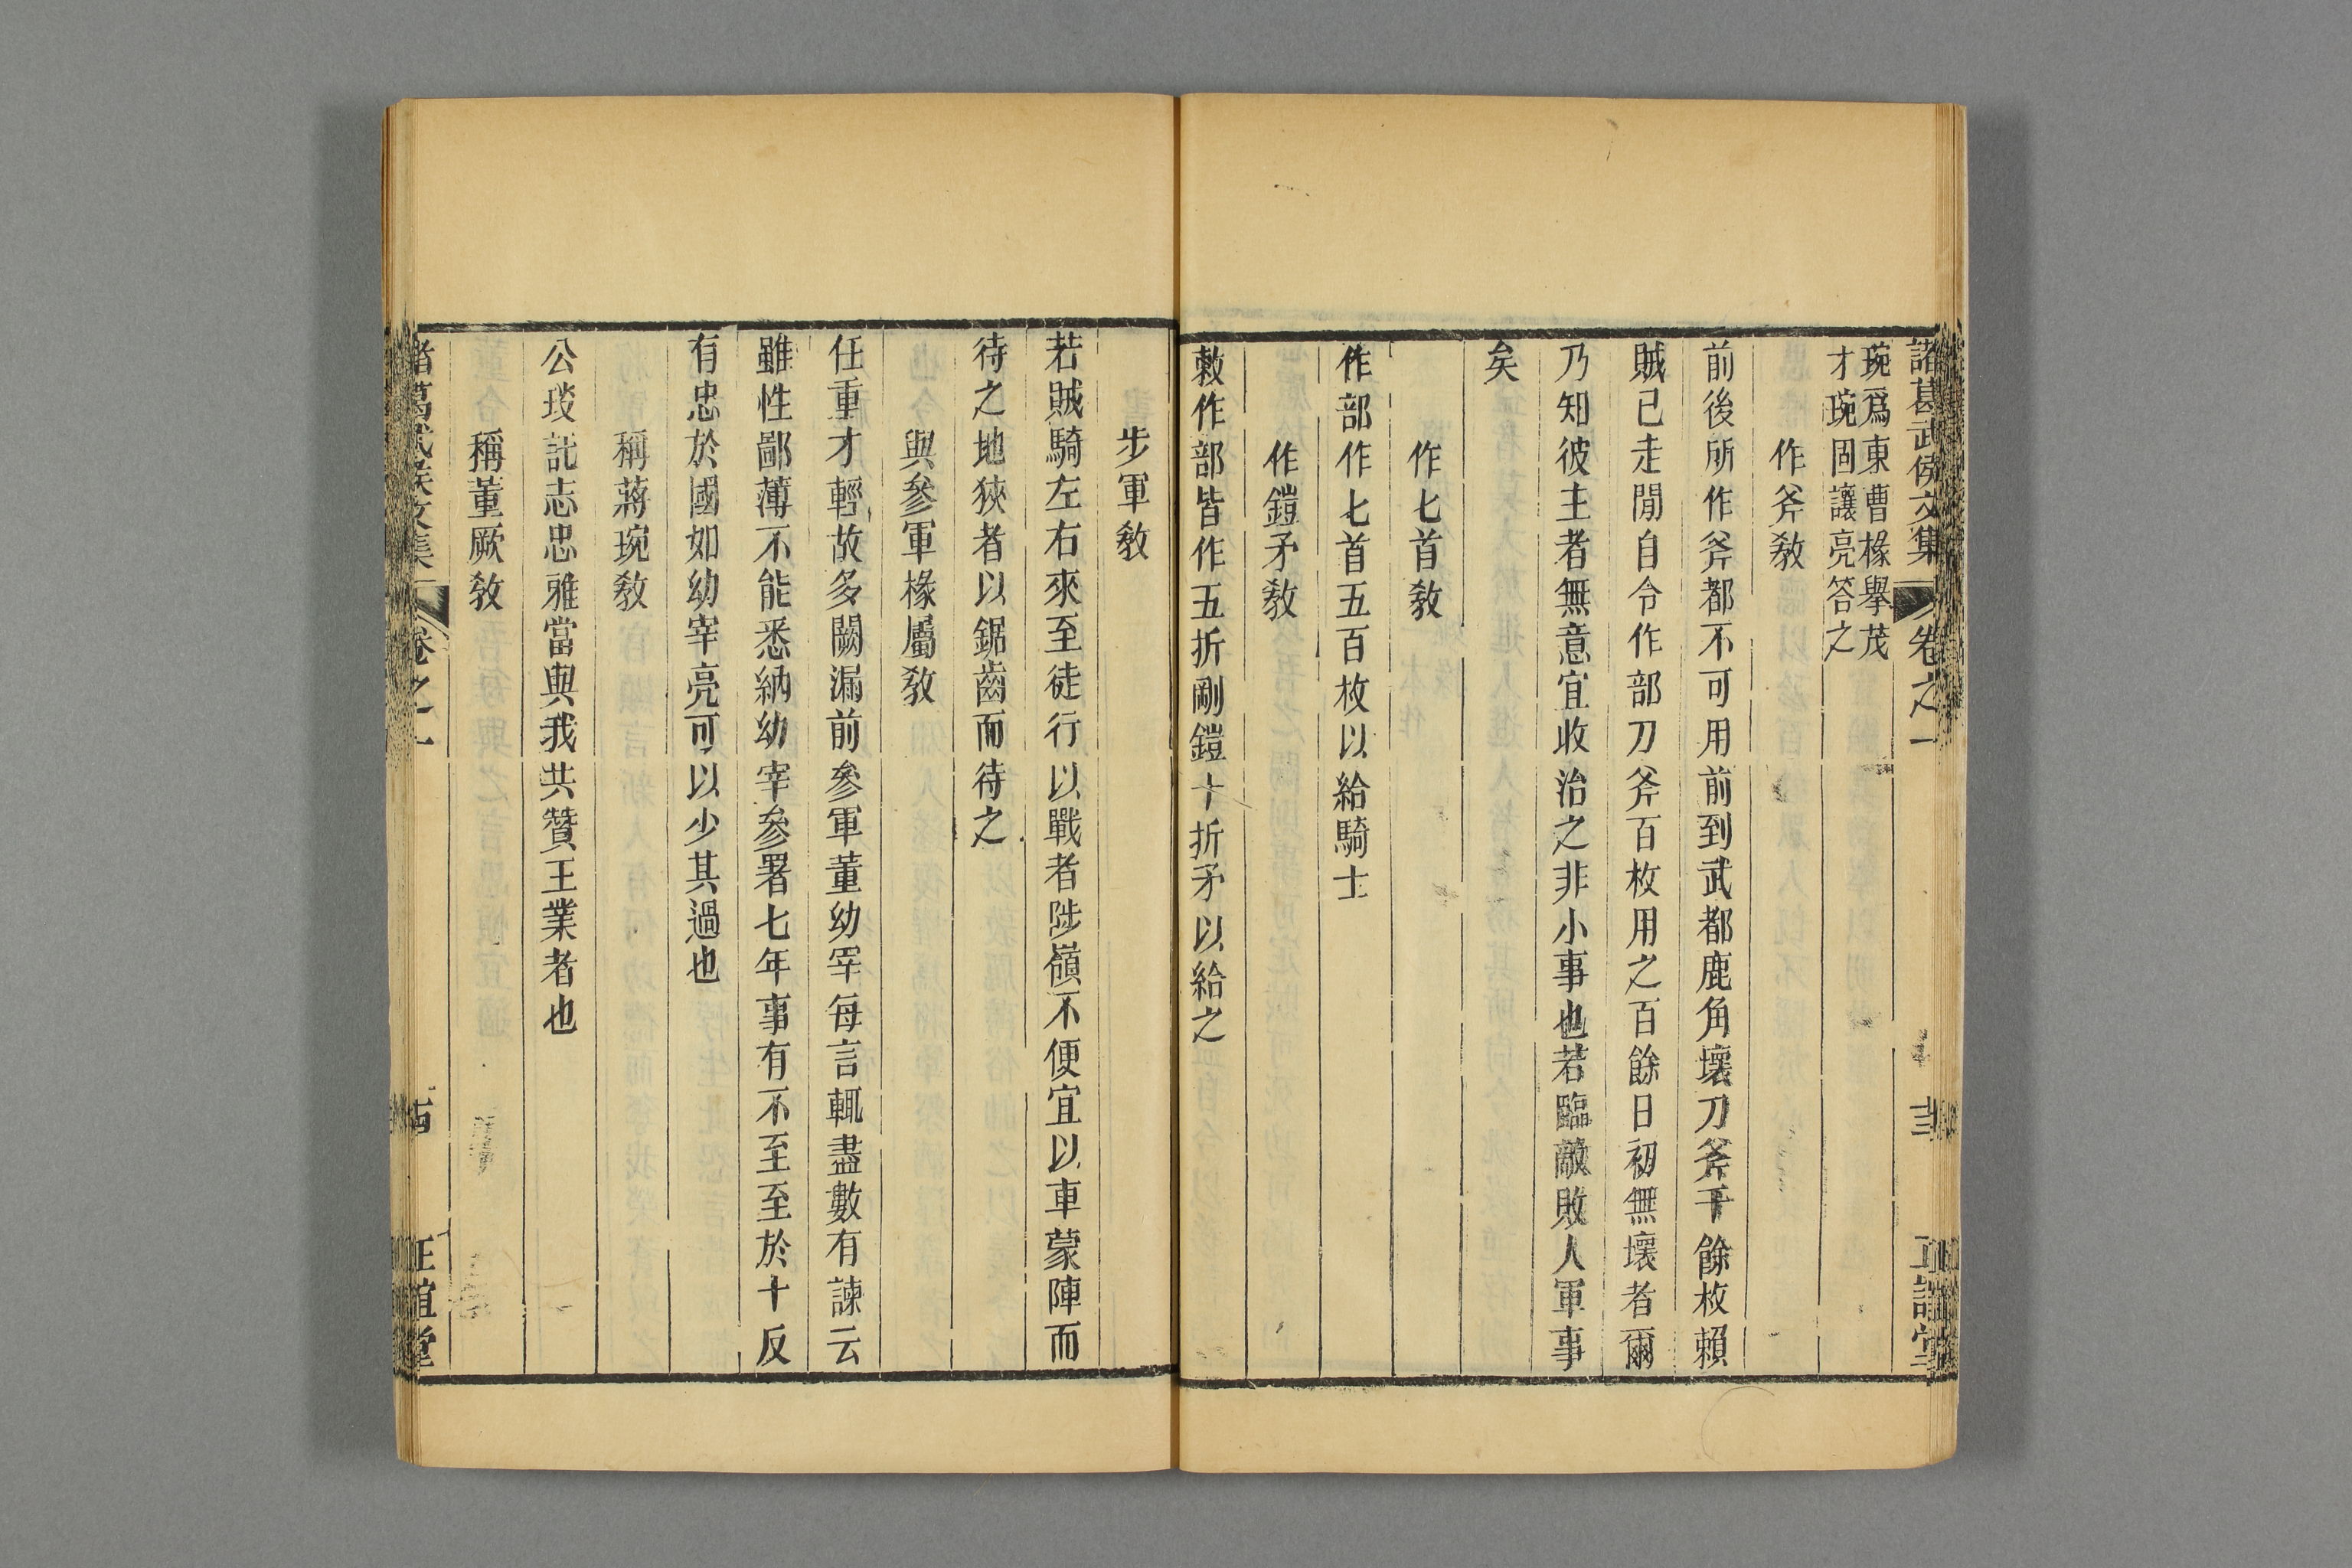 諸葛武侯文集 卷之一
琬爲東曹椽擧茂
才琬固讓亮答之
作斧敎
前後所作斧都不可用前到武都鹿角壞刀斧千餘枚賴
賊已走閒自令作部刀斧百枚用之百餘日初無壞者爾
乃知彼主者無意宜收治之非小事也若臨敵敗人軍事
矣
作匕首敎
作部作匕首五百枚以給騎士
作鎧矛敎
敕作部皆作五折剛鎧十折矛以給之
步軍敎
若賊騎左右來至徒行以戰者陟嶺不便宜以車蒙陣而
待之地狹者以鋸齒而待之
與參軍椽屬敎
任重才輕故多闕漏前參軍董幼宰每言輒盡數有諫云
雖性鄙薄不能悉納幼宰參署七年事有不至至於十反
有忠於國如幼宰亮可以少其過也
稱蔣琬敎
公琰託志忠雅當與我共贊王業者也
稱董厥敎
諸葛武侯文集 卷之一 正誼堂